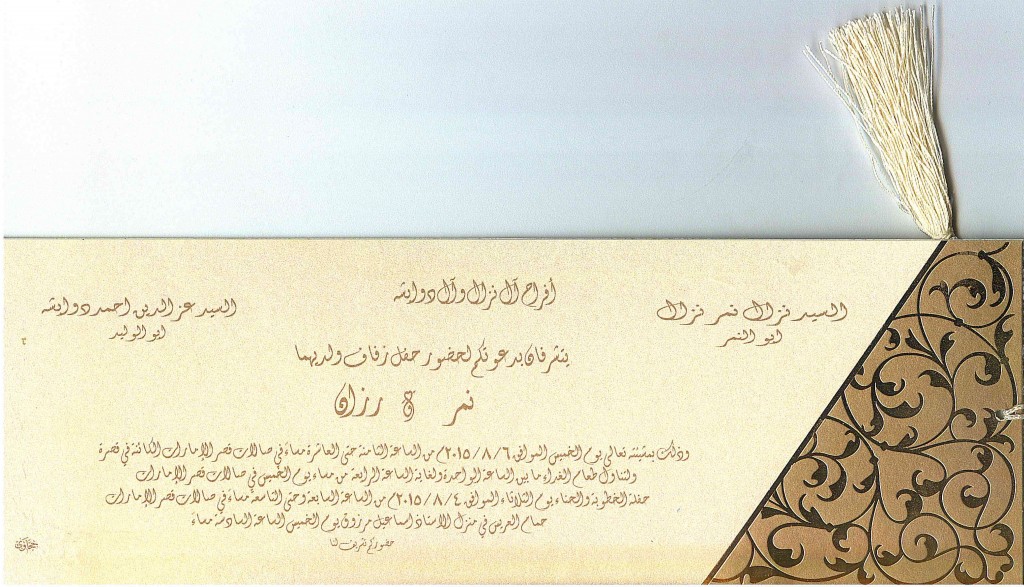 أفراح آل نزال وآل دوابشه
السيد نزال نمر نزال
ابو النمر
السيد عز الدين احمد دوابشه
ابو الوليد
يتشرفان بدعوتكم لحضور حفل زفاف ولديهما
نمر & رزان
وذلك بمشيئته تعالى يوم الخميس الموافق ٢٠١٥/٨/٦م من الساعة الثامنة حتى العاشرة مساءً في صالات قصر الإمارات الكائنة في قصرة
ولتناول طعام الغداء ما بين الساعة الواحدة ولغاية الساعة الرابعة من مساء يوم الخميس في صالات قصر الإمارات
حفلة الخطوبة والحناء يوم الثلاثاء الموافق ٢٠١٥/٨/٤م من الساعة السابعة وحتى التاسعة مساءً في صالات قصر الإمارات
حمام العريس في منزل الاستاذ اسماعيل مرزوق يوم الخميس الساعة السادسة مساءً
حضوركم تشريف لنا
حجاوي